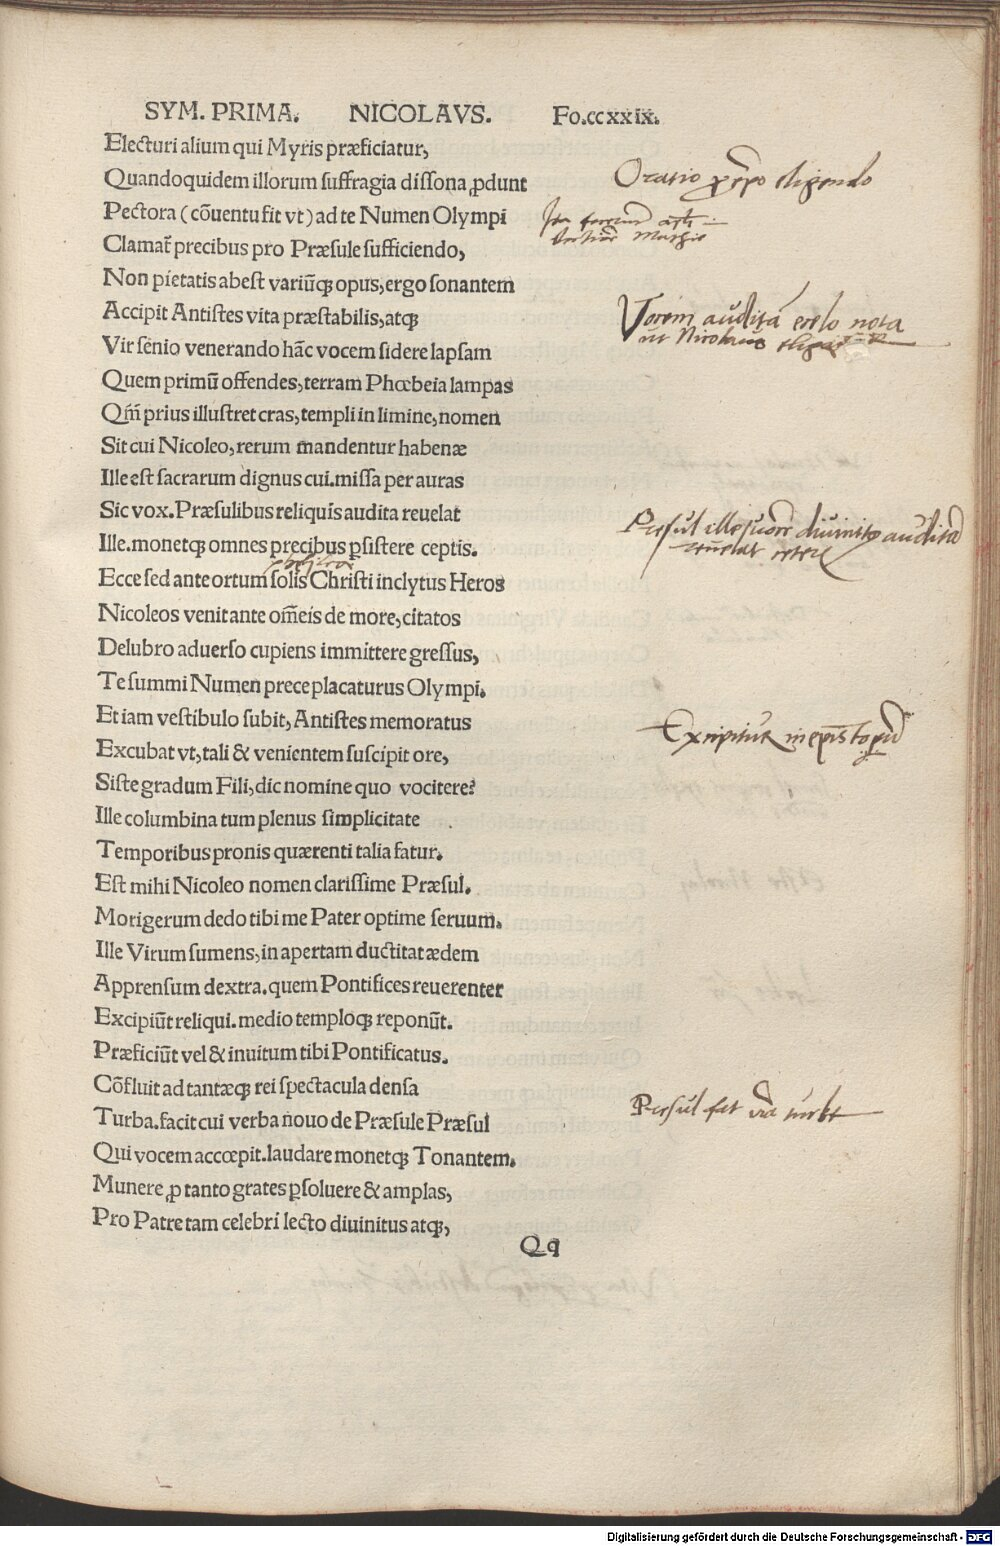 SYM. PRIMA. NICOLAVS. Fo.ccxxix.
Electuri alium qui Myris præficiatur,
Quandoquidem illorum suffragia dissona ꝓdunt
Oratio eligendo
Pectora (cõuentu fit vt) ad te Numen Olympi
Clamat̃ precibus pro Præsule sufficiendo,
Non pietatis abest variũꝙ opus, ergo sonantem
Accipit Antistes vita præstabilis, atꝙ
Vocem auditã e celo nota
Vir senio venerando hãc vocem sidere lapsam
ut Nicolaus
Quem primũ offendes, terram Phœbeia lampas
Qm̃ prius illustret cras, templi in limine, nomen
Sit cui Nicoleo, rerum mandentur habenæ
Ille est sacrarum dignus cui. missa per auras
Sic vox. Præsulibus reliquis audita reuelat
Presul ille diuinitꝰ audita
Ille. monetꝙ omnes precibus ꝑsistere ceptis.
reuelat
Ecce sed ante ortum solis Christi inclytus Heros
Nicoleos venit ante om̃eis de more, citatos
Delubro aduerso cupiens immittere gressus,
Te summi Numen prece placaturus Olympi.
Et iam vestibulo subit, Antistes memoratus
Excipitur in
Excubat vt, tali & venientem suscipit ore,
Siste gradum Fili, dic nomine quo vocitere?
Ille columbina tum plenus simplicitate
Temporibus pronis quærenti talia fatur.
Est mihi Nicoleo nomen clarissime Præsul.
Morigerum dedo tibi me Pater optime seruum.
Ille Virum sumens, in apertam ductitat ædem
Apprensum dextra. quem Pontifices reuerenter
Excipiũt reliqui. medio temploꝙ reponũt.
Præficiũt vel & inuitum tibi Pontificatus.
Cõfluit ad tantæꝙ rei spectacula densa
Presul
Turba. facit cui verba nouo de Præsule Præsul
Qui vocem accœpit. laudare monetꝙ Tonantem.
Munere ꝓ tanto grates ꝑsoluere & amplas,
Pro Patre tam celebri lecto diuinitus atꝙ,
Qq
Digitalisierung gefördert durch die Deutsche Forschungsgemeinschaft - DFG